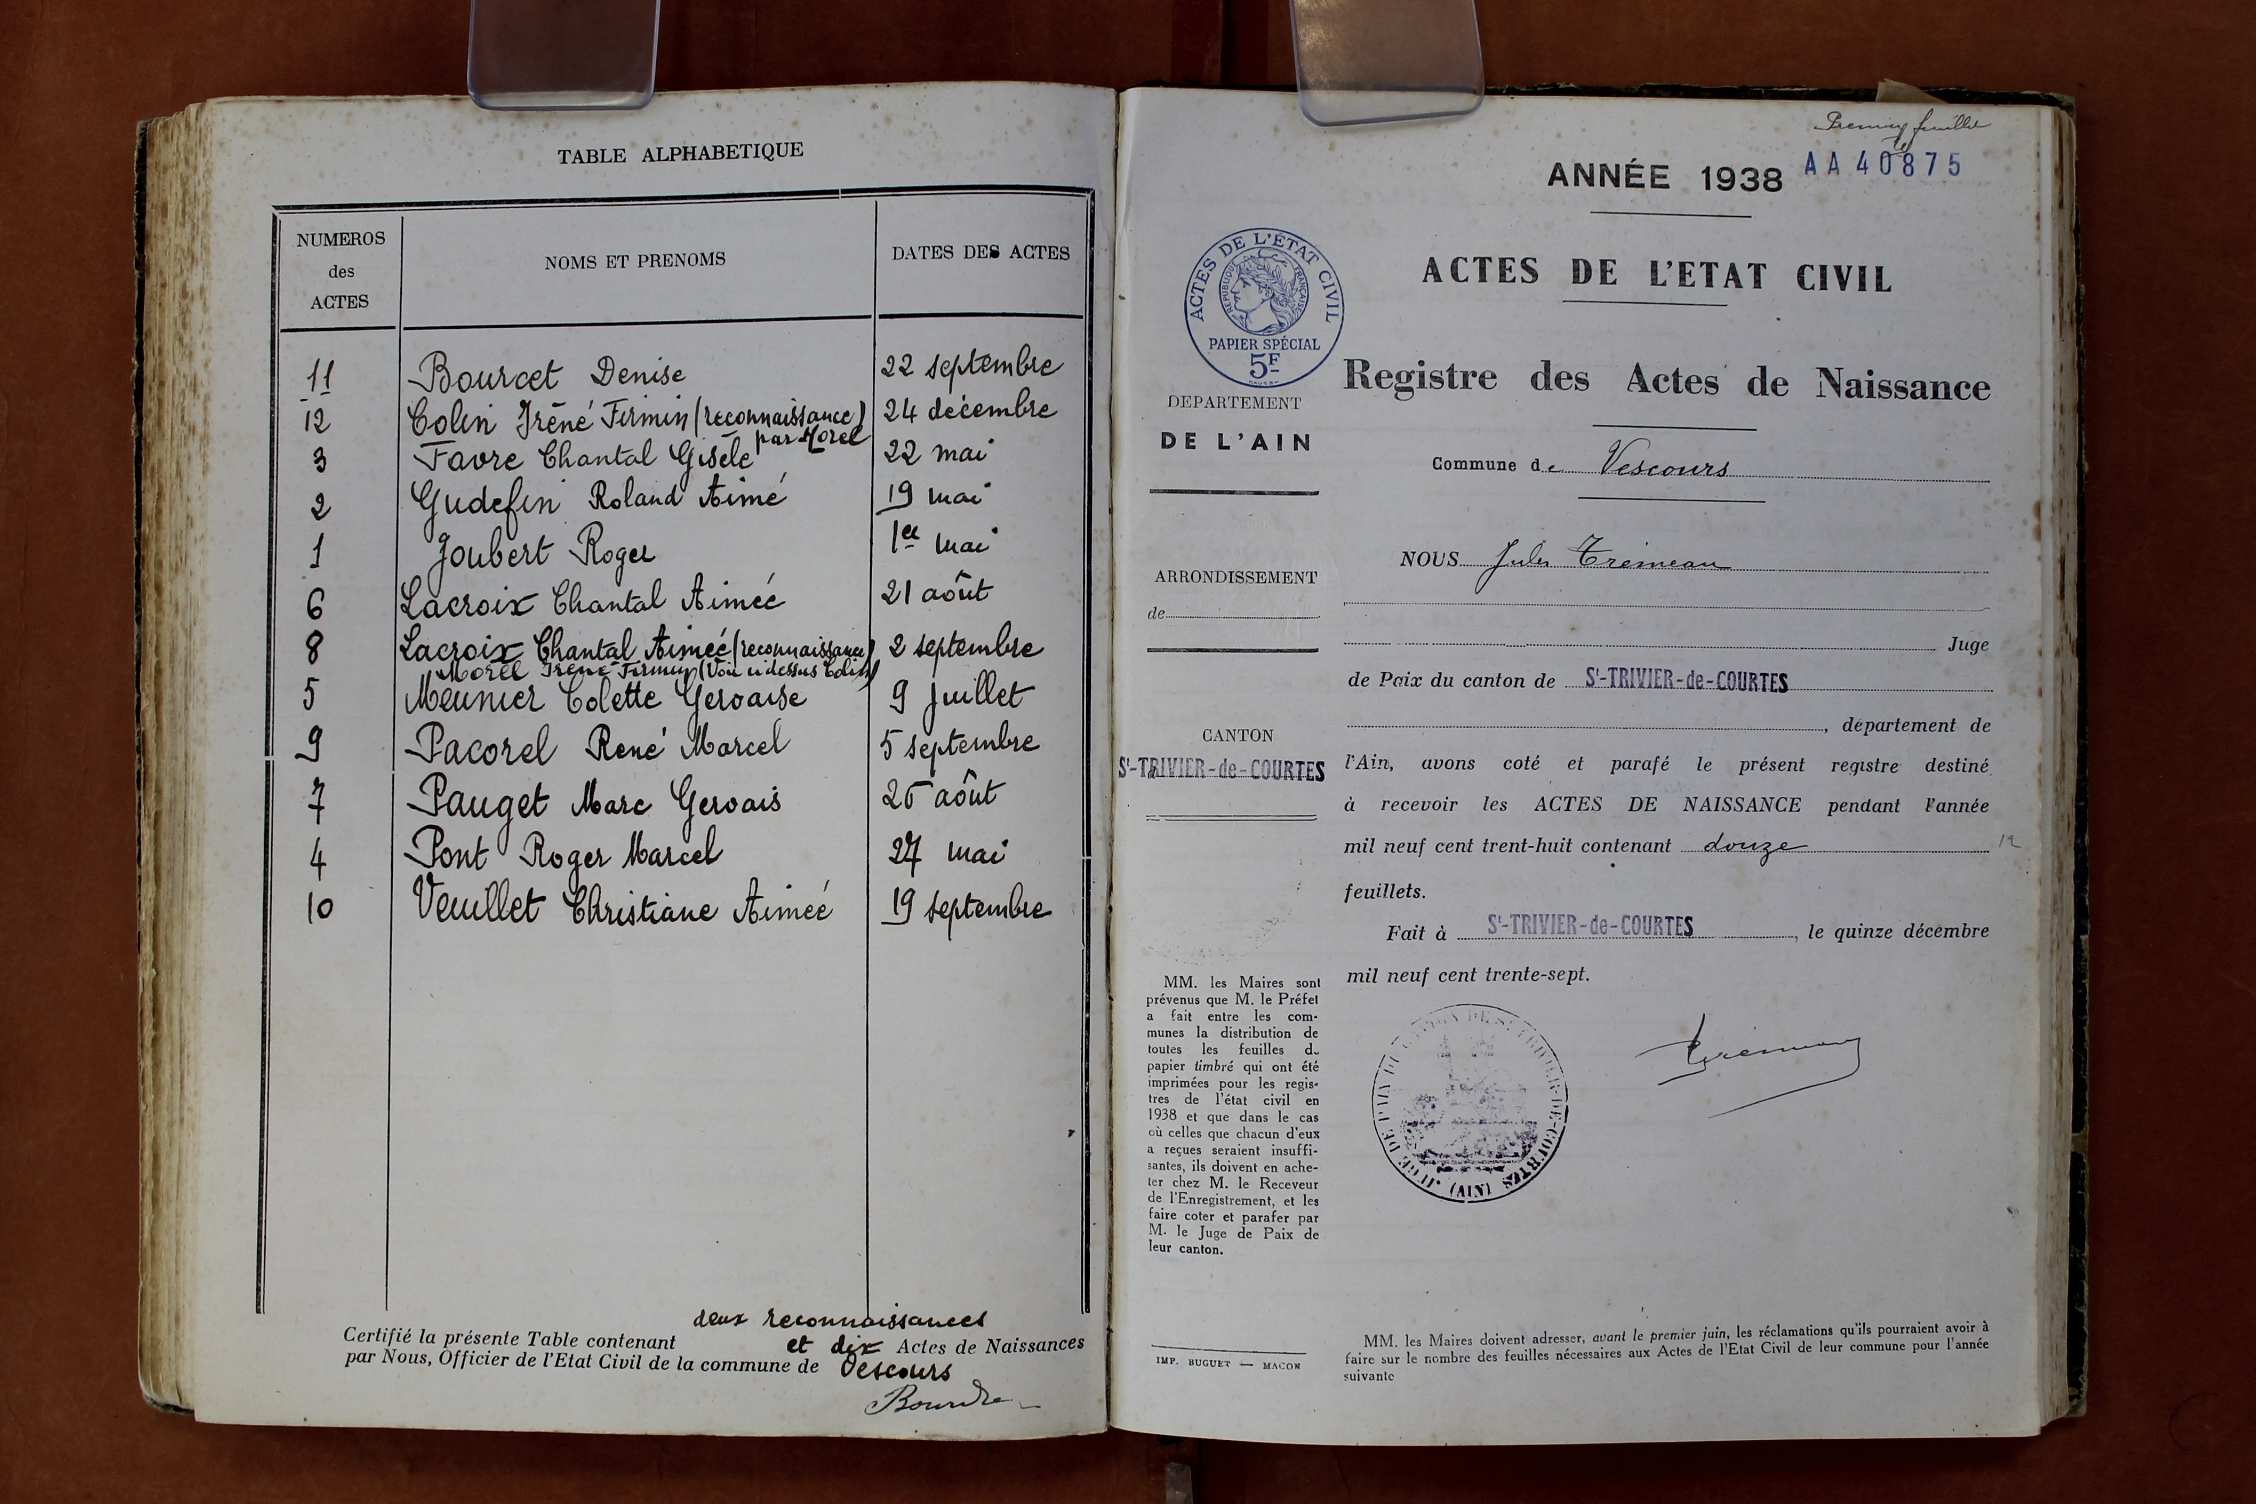 TABLE ALPHABETIQUE
NUMEROS des ACTES
NOMS ET PRENOMS
DATES DES ACTES
11 Bourcet Denise 22 septembre
12 Colin Iréné Firmin (reconnaissance) 24 décembre
par Morel
3 Favre Chantal Gisèle 22 mai
2 Gudefin Roland Aimé 19 mai
1 Joubert Roger 1er mai
6 Lacroix Chantal Aimée 21 août
8 Lacroix Chantal Aimée (reconnaissance) 2 septembre
Morel Iréné Firmin (Voir ci dessus Colin)
5 Meunier Colette Gervaise 9 juillet
9 Pacorel René Marcel 5 septembre
7 Pauget Marc Gervais 26 août
4 Pont Roger Marcel 27 mai
10 Veuillet Christiane Aimée 19 septembre
deux reconnaissances
Certifié la présente Table contenant et dix Actes de Naissances
par Nous, Officier de l'Etat Civil de la commune de Vescours
Premier feuillet
ANNÉE 1938 AA 40875
ACTES DE L'ÉTAT CIVIL
RÉPUBLIQUE FRANÇAISE
PAPIER SPÉCIAL
5F
ACTES DE L'ETAT CIVIL
Registre des Actes de Naissance
DEPARTEMENT
DE L'AIN
Commune de Vescours
ARRONDISSEMENT
de
CANTON
St-TRIVIER-de-COURTES
NOUS Jules Trémeau
Juge
de Paix du canton de St-TRIVIER-de-COURTES
, département de
l'Ain, avons coté et parafé le présent registre destiné
à recevoir les ACTES DE NAISSANCE pendant l'année
mil neuf cent trent-huit contenant douze 12
feuillets.
Fait à St-TRIVIER-de-COURTES, le quinze décembre
mil neuf cent trente-sept.
MM. les Maires sont
prévenus que M. le Préfet
a fait entre les com-
munes la distribution de
toutes les feuilles du
papier timbré qui ont été
imprimées pour les regis-
tres de l'état civil en
1938 et que dans le cas
où celles que chacun d'eux
a reçues seraient insuffi-
santes, ils doivent en ache-
ter chez M. le Receveur
de l'Enregistrement, et les
faire coter et parafer par
M. le Juge de Paix de
leur canton.
JUGE DE PAIX DU CANTON DE St TRIVIER-DE-COURTES (AIN)
Trémeau
IMP. BUGUET — MACON
MM. les Maires doivent adresser, avant le premier juin, les réclamations qu'ils pourraient avoir à
faire sur le nombre des feuilles nécessaires aux Actes de l'Etat Civil de leur commune pour l'année
suivante